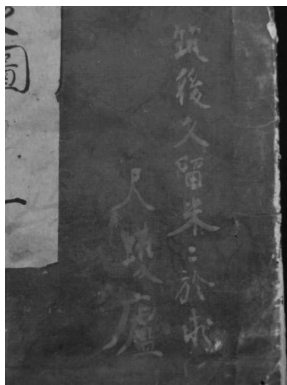 筑後久留米ニ於求
尺蠖廬
圖 一